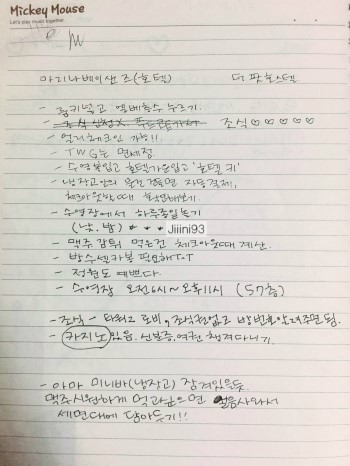 Mickey Mouse
Let's play music together.
마리나베이샌즈(호텔) 더 팟 호스텔
- 룸키넣고 엘베층수 누르기.
조식♡♡♡♡♡
- 얼리체크인 가능!!
- TWG는 면세점
- 수영복입고 호텔가운입고 '호텔 키'
- 냉장고안의 물건 건들면 자동결제,
체크아웃할때
- 수영장에서 하루종일 놀기
(낮, 밤) * * *
Jiiini93
- 맥주 감튀 먹은건 체크아웃때 계산.
- 방수셀카봉 필요해ㅜㅜ
- 정원도 예쁘다.
- 수영장 오전6시~오후11시 (57층)
- 조식 - 타워2 로비, 조식권없고 방번호알려주면 됨.
- 카지노 있음. 신분증, 여권 챙겨다니기.
- 아마 미니바(냉장고) 잠겨있을듯.
맥주시원하게 먹고싶으면 얼음사와서
세면대에 담아두기!!